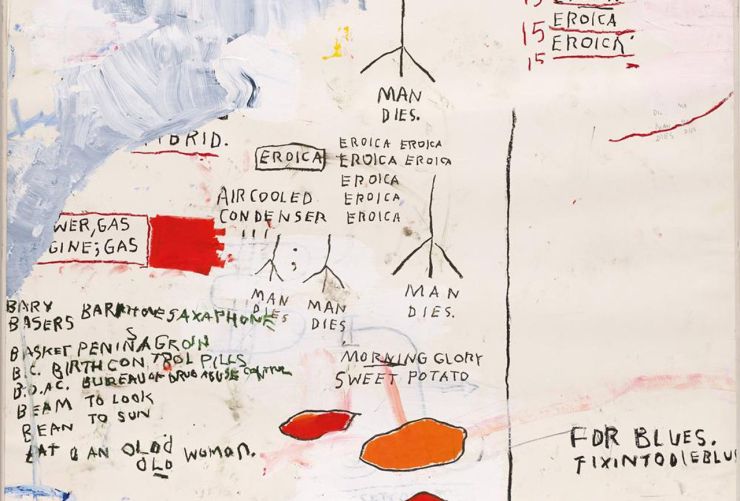 15
15 EROICA
15 EROICA
15
MAN
DIES.
BRID.
EROICA
EROICA EROICA
EROICA EROICA
EROICA
EROICA
EROICA
AIR COOLED
CONDENSER
WER, GAS
GINE; GAS
MAN
DIES
MAN
DIES
MAN
DIES.
BARY BARITONE SAXAPHONE
BASERS
BASKET PENINAGROIN
B.C. BIRTH CONTROL PILLS
B.D.A.C. BUREAU OF DRUG ABUSE CONTROL
BEAM TO LOOK
BEAN TO SUN
EAT @ AN OLDD WOMAN.
OLD
MORNING GLORY
SWEET POTATO
FOR BLUES.
FIXINTODIEBLU